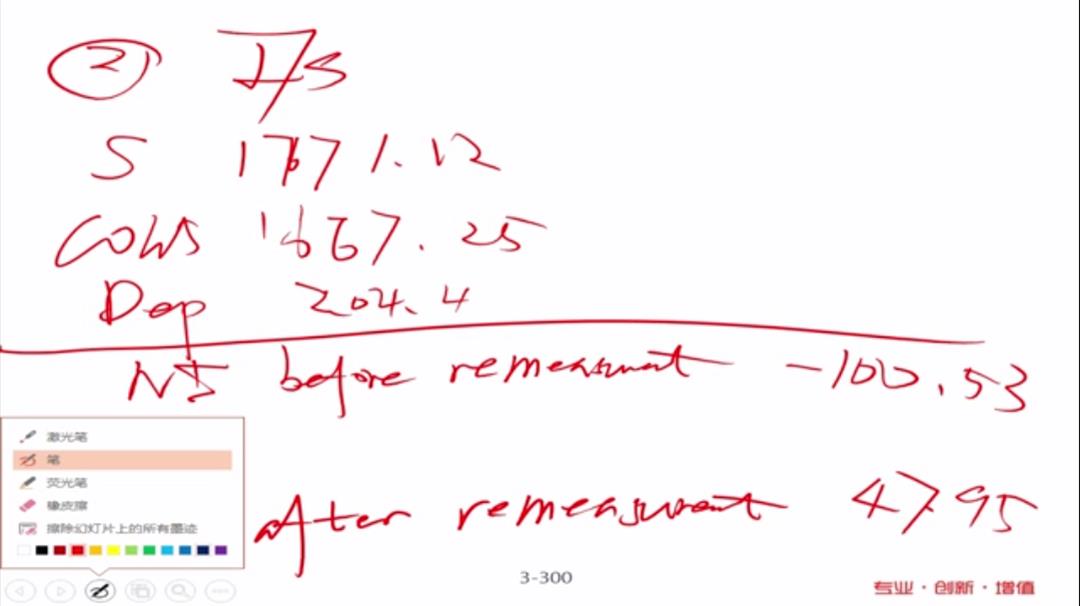 ② I/S
S 1771.12
COGS 1667.25
Dep 204.4
NI before remeasurment -100.53
After remeasurment 47.95
激光笔
笔
荧光笔
橡皮擦
擦除幻灯片上的所有墨迹
3-300
专业·创新·增值